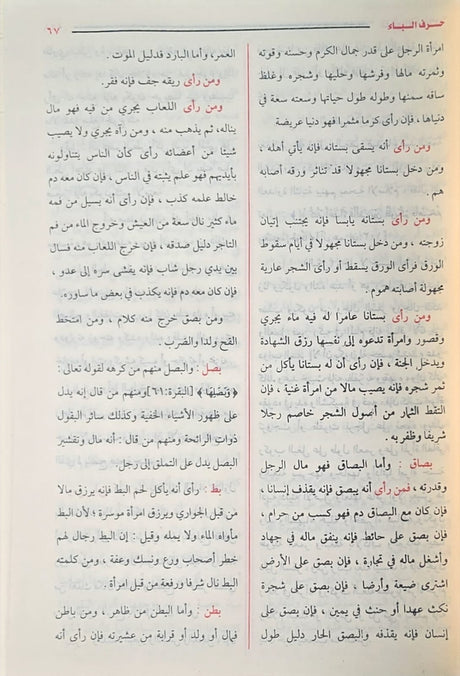 حرف الباء
٦٧
امرأة الرجل على قدر جمال الكرم وحسنه وقوته
وثمرته مالها وفرشها وحليها وشجره وغلظ
ساقه سمنها وطوله طول حياتها وسعته سعة في
دنياها ، فإن رأى كرما مثمرا فهو دنيا عريضة
ومن رأى أنه يسقى بستانه فإنه يأتي أهله ،
ومن دخل بستانا مجهولا قد تناثر ورقه أصابه
هم .
ومن رأى بستانه يابسا فإنه يجتنب إتيان
زوجته ، ومن دخل بستانا مجهولا في أيام سقوط
الورق فرأى الورق يسقط أو رأى الشجر عارية
مجهولة أصابته هموم .
ومن رأى بستانا عامرا له فيه ماء يجري
وقصور وامرأة تدعوه إلى نفسها رزق الشهادة
ويدخل الجنة ، فإن رأى أن له بستانا يأكل من
ثمر شجره فإنه يصيب مالا من امرأة غنية ، فإن
التقط الثمار من أصول الشجر خاصم رجلا
شريفا وظفر به .
بصاق : وأما البصاق فهو مال الرجل
وقدرته ، فمن رأى أنه يبصق فإنه يقذف إنسانا ،
فإن كان مع البصاق دم فهو كسب من حرام ،
فإن بصق على حائط فإنه ينفق ماله في جهاد
وأشغل ماله في تجارة ، فإن بصق على الأرض
اشترى ضيعة وأرضا ، فإن بصق على شجرة
نكث عهدا أو حنث في يمين ، فإن بصق على
إنسان فإنه يقذفه والبصق الحار دليل طول
العمر، وأما البارد فدليل الموت .
ومن رأى ريقه جف فإنه فقر.
ومن رأى اللعاب يجري من فيه فهو مال
يناله، ثم يذهب منه ، ومن رآه يجري ولا يصيب
شيئا من أعضائه رأى كأن الناس يتناولونه
بأيديهم فهو علم يثبته في الناس ، فإن كان معه دم
خالط علمه كذب ، فإن رأى أنه يسيل من فمه
ماء كثير نال سعة من العيش وخروج الماء من فم
التاجر دليل صدقه ، فإن خرج اللعاب منه فسال
بين يدي رجل شاب فإنه يفشى سره إلى عدو ،
فإن كان معه دم فإنه يكذب في بعض ما ساوره.
ومن بصق خرج منه كلام ، ومن امتخط
القح ولدا والضرب .
بصل : والبصل منهم من كرهه لقوله تعالى :
﴿ وَبَصَلِهَا﴾ [البقرة:٦١] ومنهم من قال إنه يدل
على ظهور الأشياء الخفية وكذلك سائر البقول
ذوات الرائحة ومنهم من قال : أنه مال وتقشير
البصل يدل على التملق إلى رجل.
بط : رأى أنه يأكل لحم البط فإنه يرزق مالا
من قبل الجواري ويرزق امرأة موسرة ؛ لأن البط
مأواه الماء ولا يمله وقيل : إن البط رجال لهم
خطر أصحاب ورع ونسك وعفة ، ومن كلمته
البط نال شرفا ورفعة من قبل امرأة .
بطن : وأما البطن من ظاهر ، ومن باطن
فمال أو ولد أو قرابة من عشيرته فإن رأى أنه